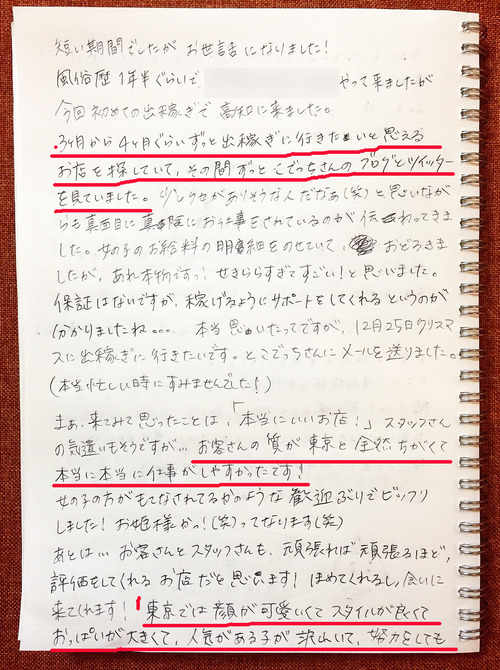 短い期間でしたがお世話になりました!
風俗歴1年半ぐらいで やって来ましたが
今回初めての出稼ぎで高知に来ました。
3ヶ月から4ヶ月ぐらいずっと出稼ぎに行きたいと思える
お店を探していて、その間ずっとこでっちさんのブログとツイッター
を見ていました。少しクセがありそうな人だなぁ(笑)と思いなが
らも真面目に真険にお仕事をされているのが伝わってきま
した。女の子のお給料の明細をのせていて、おどろきま
したが、あれ本物ですっ!せきららすぎてすごい!と思いました。
保証はないですが、稼げるようにサポートをしてくれるというのが
分かりましたね... 本当思いたってですが、12月25日クリスマ
スに出稼ぎに行きたいです。とこでっちさんにメールを送りました。
(本当忙しい時にすみませんでした!)
まぁ、来てみて思ったことは、「本当にいいお店!」スタッフさん
の気遣いもそうですが... お客さんの質が東京と全然ちがくて
本当に本当に仕事がしやすかったです!
女の子の方がもてなされてるかのような歓迎ぶりでビックリ
しました!お姫様かっ!(笑)ってなります(笑)
あとは... お客さんとスタッフさんも、頑張れば頑張るほど、
評価をしてくれるお店だと思います!ほめてくれるし、会いに
来てくれます!東京では顔が可愛いくてスタイルが良くて
おっぱいが大きくて、人気がある子が沢山いて、努力をしても